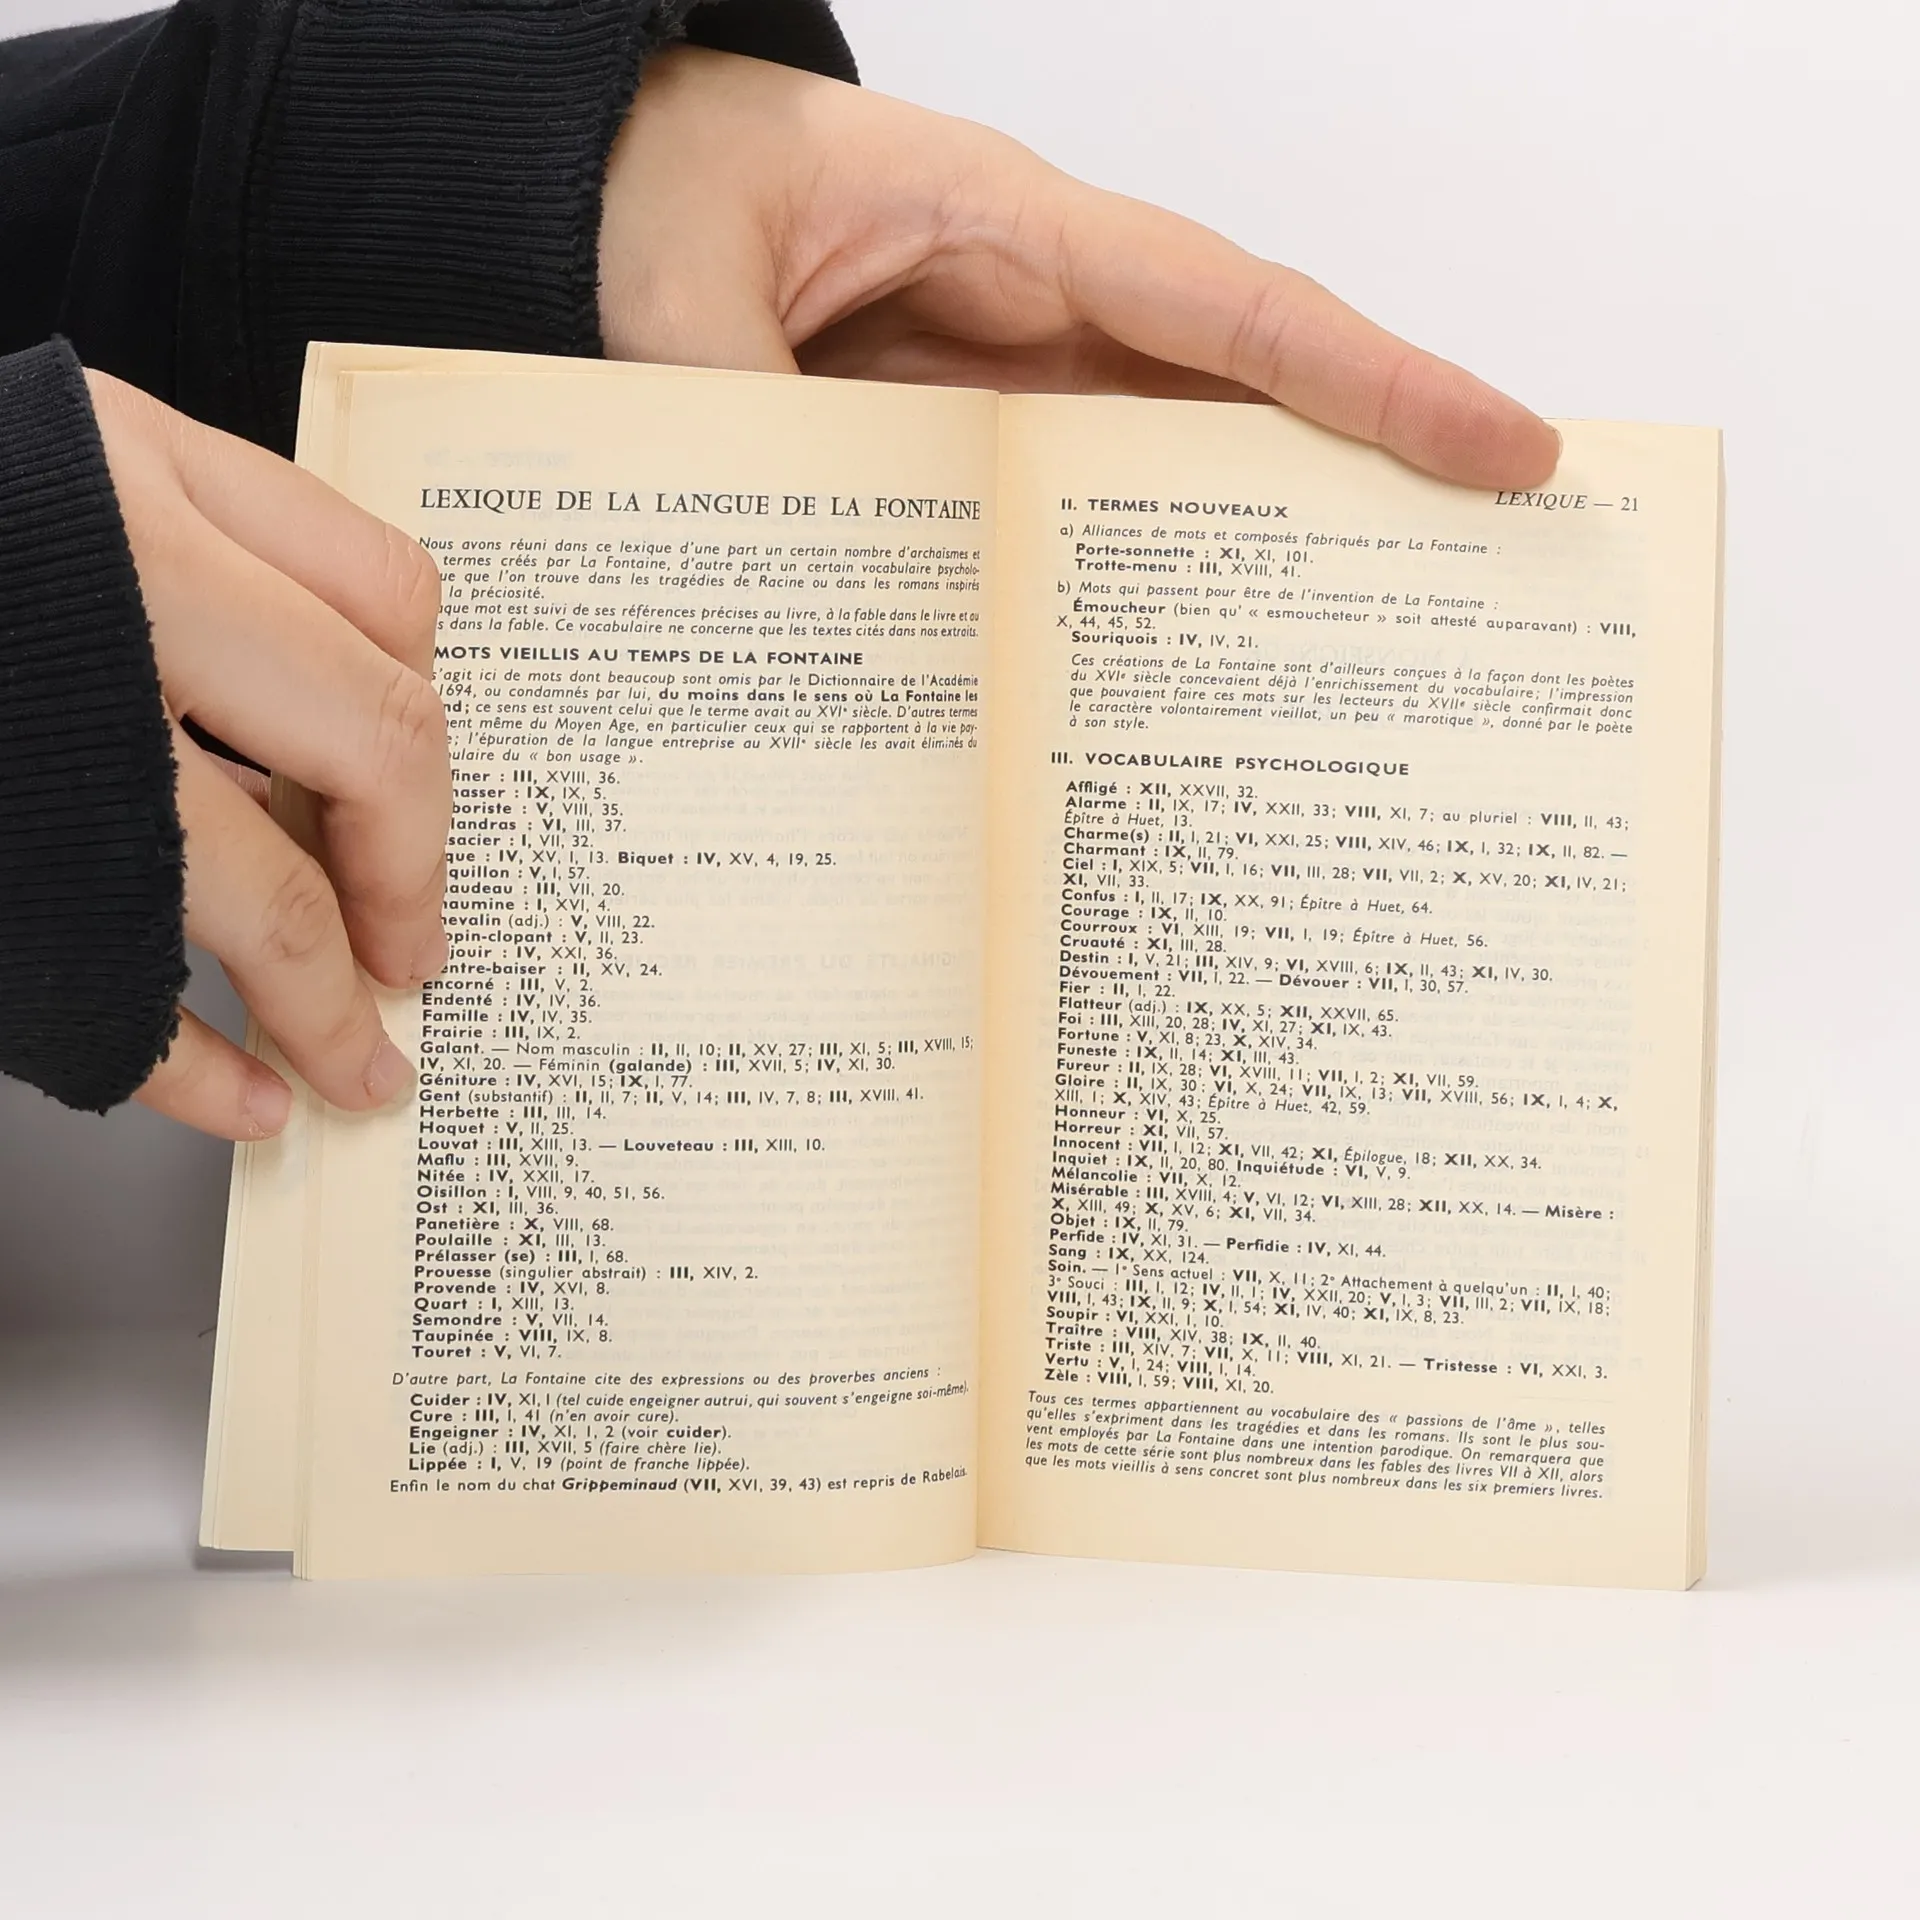 LEXIQUE DE LA LANGUE DE LA FONTAINE
Nous avons réuni dans ce lexique d'une part un certain nombre d'archaïsmes et
termes créés par La Fontaine, d'autre part un certain vocabulaire psycholo-
que l'on trouve dans les tragédies de Racine ou dans les romans inspirés
la préciosité.
mot est suivi de ses références précises au livre, à la fable dans le livre et au
dans la fable. Ce vocabulaire ne concerne que les textes cités dans nos extraits.
MOTS VIEILLIS AU TEMPS DE LA FONTAINE
s'agit ici de mots dont beaucoup sont omis par le Dictionnaire de l'Académie
1694, ou condamnés par lui, du moins dans le sens où La Fontaine les
; ce sens est souvent celui que le terme avait au XVIe siècle. D'autres termes
même du Moyen Age, en particulier ceux qui se rapportent à la vie pay-
; l'épuration de la langue entreprise au XVIIe siècle les avait éliminés du
du « bon usage ».
: III, XVIII, 36.
: IX, IX, 5.
: V, VIII, 35.
: VI, III, 37.
: I, VII, 32.
: IV, XV, I, 13. Biquet : IV, XV, 4, 19, 25.
: V, I, 57.
: III, VII, 20.
: I, XVI, 4.
(adj.) : V, VIII, 22.
: V, II, 23.
: IV, XXI, 36.
: II, XV, 24.
Encorné : III, V, 2.
Endenté : IV, IV, 36.
Famille : IV, IV, 35.
Frairie : III, IX, 2.
Galant. — Nom masculin : II, II, 10; II, XV, 27; III, XI, 5; III, XVIII, 15;
IV, XI, 20. — Féminin (galande) : III, XVII, 5; IV, XI, 30.
Géniture : IV, XVI, 15; IX, I, 77.
Gent (substantif) : II, II, 7; II, V, 14; III, IV, 7, 8; III, XVIII, 41.
Herbette : III, III, 14.
Hoquet : V, II, 25.
Louvat : III, XIII, 13. — Louveteau : III, XIII, 10.
Maflu : III, XVII, 9.
Nitée : IV, XXII, 17.
Oisillon : I, VIII, 9, 40, 51, 56.
Ost : XI, III, 36.
Panetière : X, VIII, 68.
Poulaille : XI, III, 13.
Prélasser (se) : III, I, 68.
Prouesse (singulier abstrait) : III, XIV, 2.
Provende : IV, XVI, 8.
Quart : I, XIII, 13.
Semondre : V, VII, 14.
Taupinée : VIII, IX, 8.
Touret : V, VI, 7.
D'autre part, La Fontaine cite des expressions ou des proverbes anciens :
Cuider : IV, XI, I (tel cuide engeigner autrui, qui souvent s'engeigne soi-même).
Cure : III, I, 41 (n'en avoir cure).
Engeigner : IV, XI, 1, 2 (voir cuider).
Lie (adj.) : III, XVII, 5 (faire chère lie).
Lippée : I, V, 19 (point de franche lippée).
Enfin le nom du chat Grippeminaud (VII, XVI, 39, 43) est repris de Rabelais.
LEXIQUE — 21
II. TERMES NOUVEAUX
a) Alliances de mots et composés fabriqués par La Fontaine :
Porte-sonnette : XI, XI, 101.
Trotte-menu : III, XVIII, 41.
b) Mots qui passent pour être de l'invention de La Fontaine :
Émoucheur (bien qu' « esmoucheteur » soit attesté auparavant) : VIII,
X, 44, 45, 52.
Souriquois : IV, IV, 21.
Ces créations de La Fontaine sont d'ailleurs conçues à la façon dont les poètes
du XVIe siècle concevaient déjà l'enrichissement du vocabulaire; l'impression
que pouvaient faire ces mots sur les lecteurs du XVIIe siècle confirmait donc
le caractère volontairement vieillot, un peu « marotique », donné par le poète
à son style.
III. VOCABULAIRE PSYCHOLOGIQUE
Affligé : XII, XXVII, 32.
Alarme : II, IX, 17; IV, XXII, 33; VIII, XI, 7; au pluriel : VIII, II, 43;
Épître à Huet, 13.
Charme(s) : II, I, 21; VI, XXI, 25; VIII, XIV, 46; IX, I, 32; IX, II, 82. —
Charmant : IX, II, 79.
Ciel : I, XIX, 5; VII, I, 16; VII, III, 28; VII, VII, 2; X, XV, 20; XI, IV, 21;
XI, VII, 33.
Confus : I, II, 17; IX, XX, 91; Épître à Huet, 64.
Courage : IX, II, 10.
Courroux : VI, XIII, 19; VII, I, 19; Épître à Huet, 56.
Cruauté : XI, III, 28.
Destin : I, V, 21; III, XIV, 9; VI, XVIII, 6; IX, II, 43; XI, IV, 30.
Dévouement : VII, I, 22. — Dévouer : VII, I, 30, 57.
Fier : II, I, 22.
Flatteur (adj.) : IX, XX, 5; XII, XXVII, 65.
Foi : III, XIII, 20, 28; IV, XI, 27; XI, IX, 43.
Fortune : V, XI, 8; 23, X, XIV, 34.
Funeste : IX, II, 14; XI, III, 43.
Fureur : II, IX, 28; VI, XVIII, 11; VII, I, 2; XI, VII, 59.
Gloire : II, IX, 30; VI, X, 24; VII, IX, 13; VII, XVIII, 56; IX, I, 4; X,
XIII, 1; X, XIV, 43; Épître à Huet, 42, 59.
Honneur : VI, X, 25.
Horreur : XI, VII, 57.
Innocent : VII, I, 12; XI, VII, 42; XI, Épilogue, 18; XII, XX, 34.
Inquiet : IX, II, 20, 80. Inquiétude : VI, V, 9.
Mélancolie : VII, X, 12.
Misérable : III, XVIII, 4; V, VI, 12; VI, XIII, 28; XII, XX, 14. — Misère :
X, XIII, 49; X, XV, 6; XI, VII, 34.
Objet : IX, II, 79.
Perfide : IV, XI, 31. — Perfidie : IV, XI, 44.
Sang : IX, XX, 124.
Soin. — 1° Sens actuel : VII, X, 11; 2° Attachement à quelqu'un : II, I, 40;
3° Souci : III, I, 12; IV, II, 1; IV, XXII, 20; V, I, 3; VII, III, 2; VII, IX, 18;
VIII, I, 43; IX, II, 9; X, I, 54; XI, IV, 40; XI, IX, 8, 23.
Soupir : VI, XXI, 1, 10.
Traître : VIII, XIV, 38; IX, II, 40.
Triste : III, XIV, 7; VII, X, 11; VIII, XI, 21. — Tristesse : VI, XXI, 3.
Vertu : V, I, 24; VIII, I, 14.
Zèle : VIII, I, 59; VIII, XI, 20.
Tous ces termes appartiennent au vocabulaire des « passions de l'âme », telles
qu'elles s'expriment dans les tragédies et dans les romans. Ils sont le plus sou-
vent employés par La Fontaine dans une intention parodique. On remarquera que
les mots de cette série sont plus nombreux dans les fables des livres VII à XII, alors
que les mots vieillis à sens concret sont plus nombreux dans les six premiers livres.